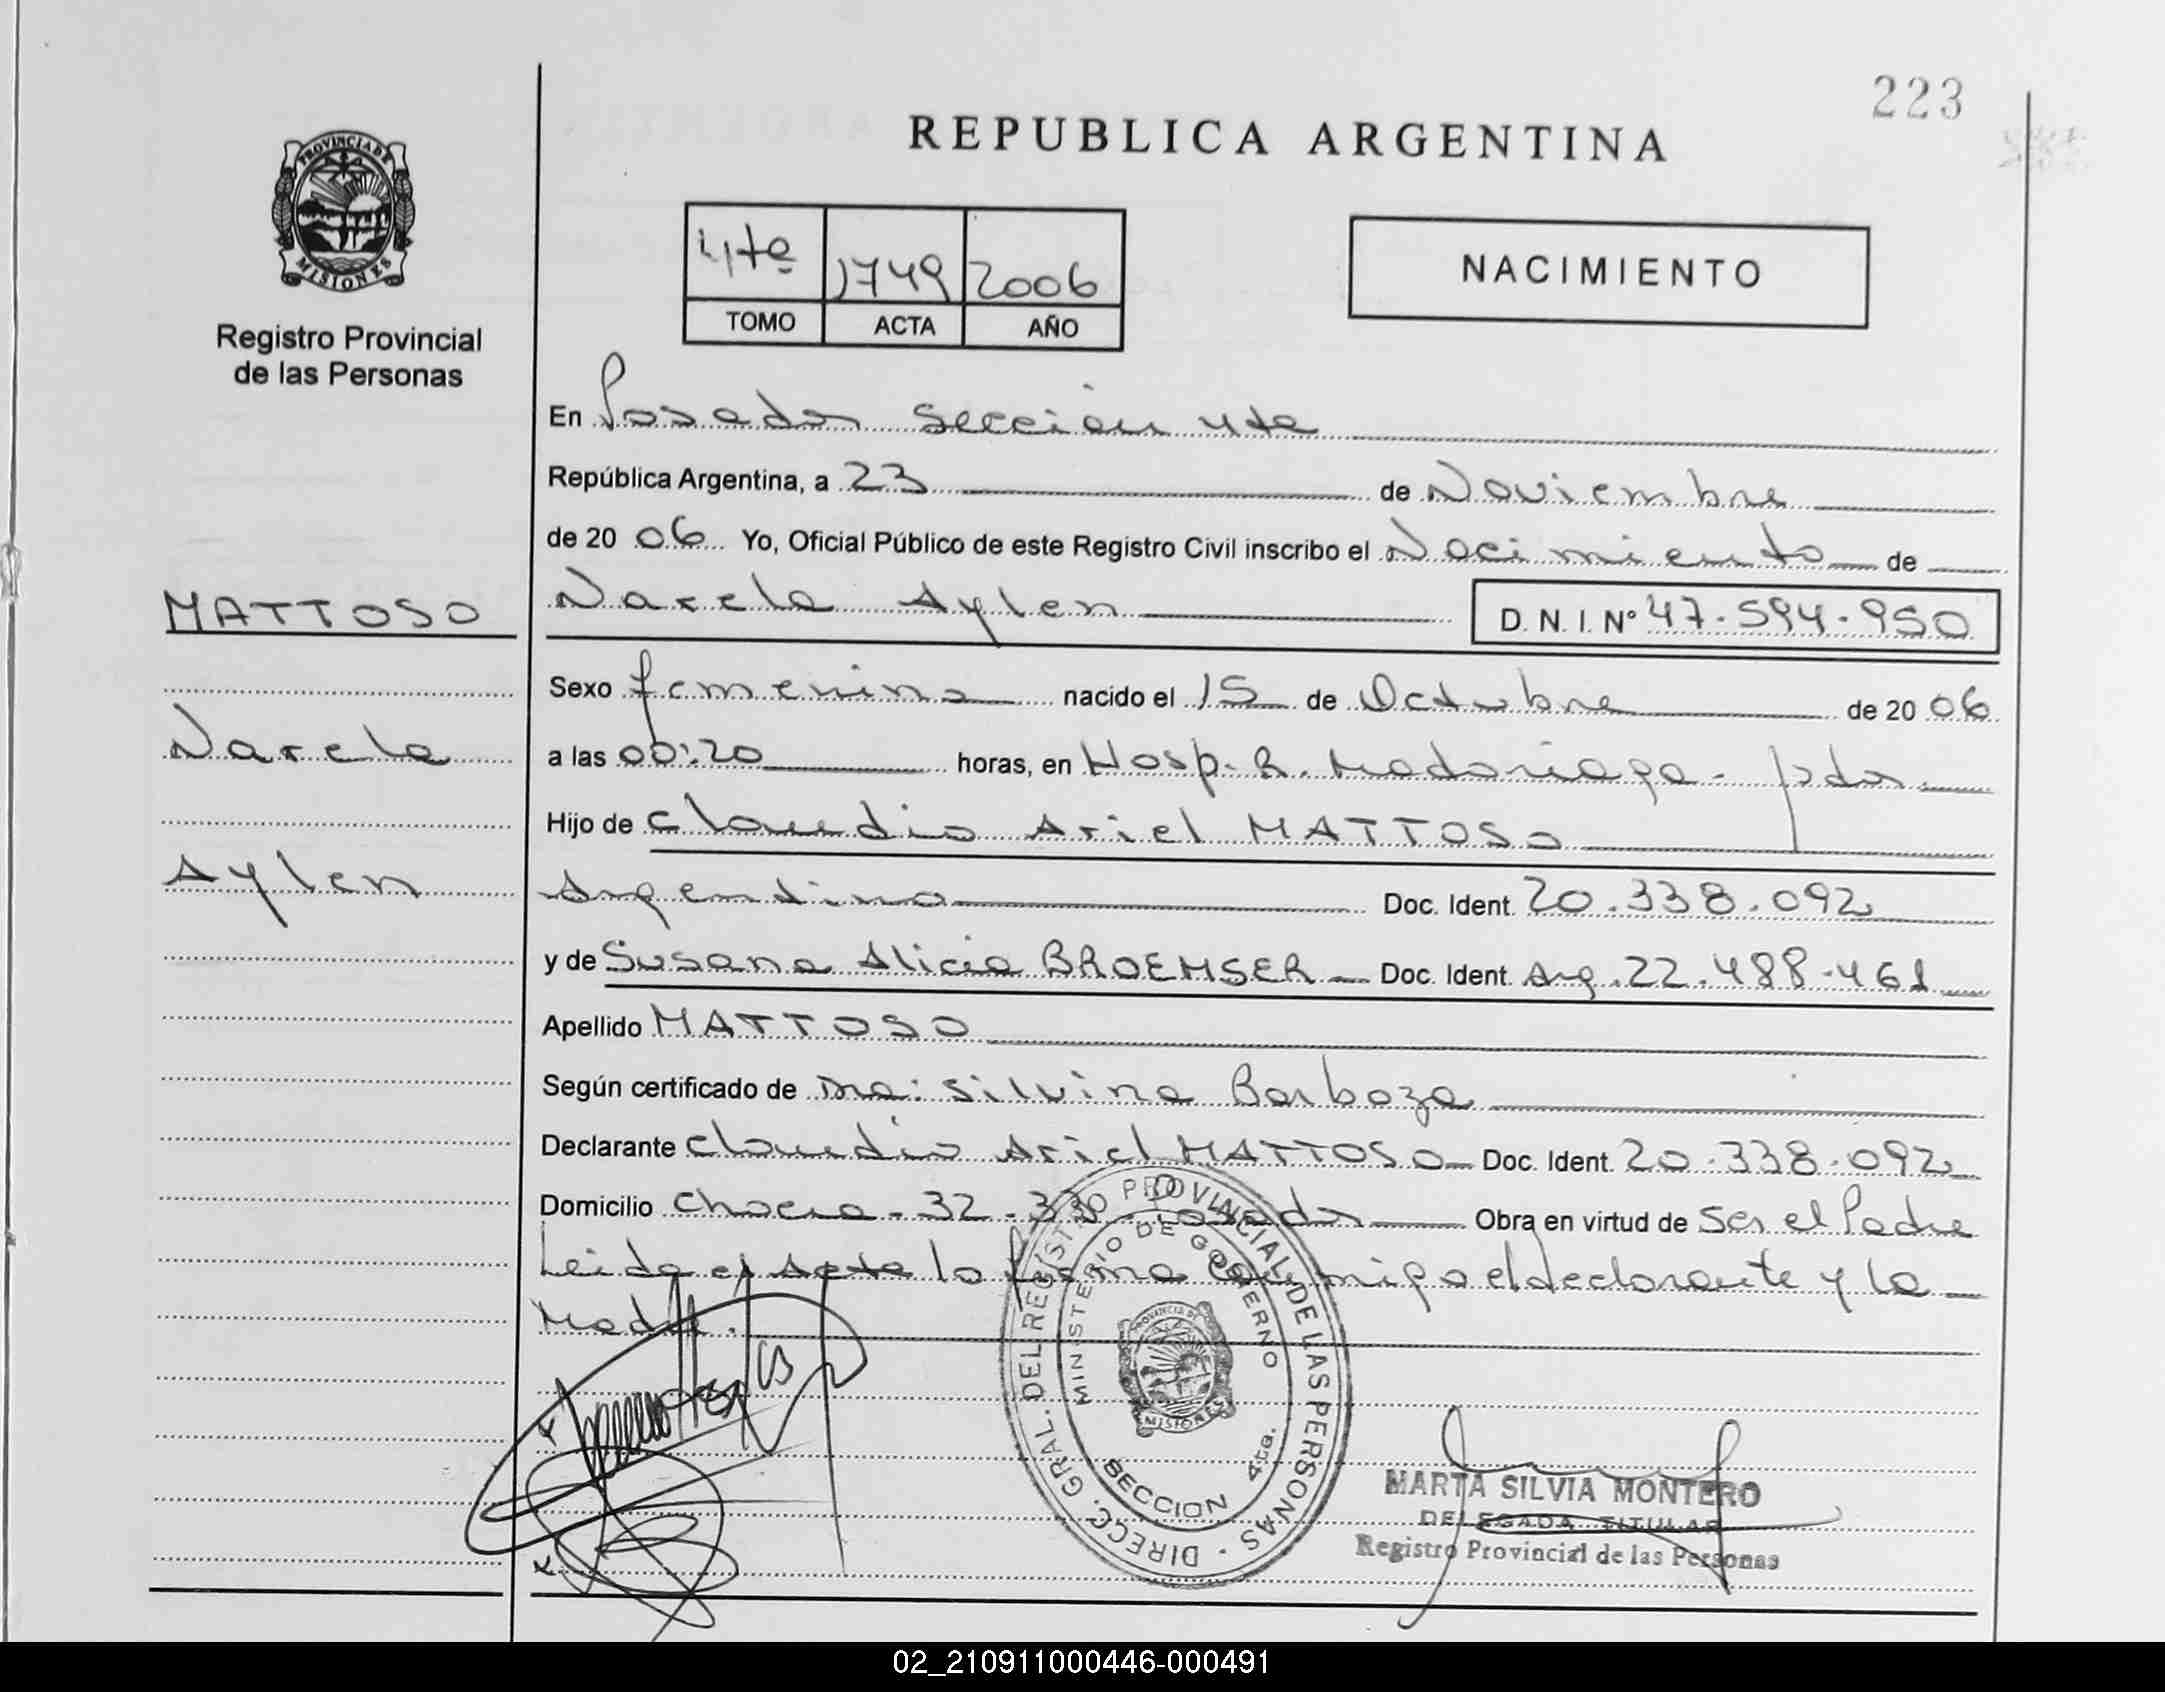 223
REPUBLICA ARGENTINA
PROVINCIA DE
MISIONES
Registro Provincial
de las Personas
4te 1749 2006
TOMO ACTA AÑO
NACIMIENTO
En Posadas Sección 4ta
República Argentina, a 23 de Noviembre
de 2006 Yo, Oficial Público de este Registro Civil inscribo el Nacimiento de
MATTOSO
Narela Aylen D. N. I. Nº 47.594.950
Sexo femenino nacido el 15 de Octubre de 2006
Narela
a las 00:20 horas, en Hosp. R. Madariaga - pdas
Hijo de Claudio Ariel MATTOSO
Aylen
Argentino Doc. Ident. 20.338.092
y de Susana Alicia BROEMSER Doc. Ident. Arg. 22.488.461
Apellido MATTOSO
Según certificado de ma: Silvina Barboza
Declarante Claudio Ariel MATTOSO Doc. Ident. 20.338.092
Domicilio Chacra - 32 - 330 Posadas Obra en virtud de Ser el Padre
Leida el Acta la firma conmigo el declarante y la
Madre.
DIRECC. GRAL. DEL REGISTRO PROVINCIAL DE LAS PERSONAS
MINISTERIO DE GOBIERNO
PROVINCIA DE
MISIONES
SECCION 4ta.
MARTA SILVIA MONTERO
DELEGADA TITULAR
Registro Provincial de las Personas
02_210911000446-000491